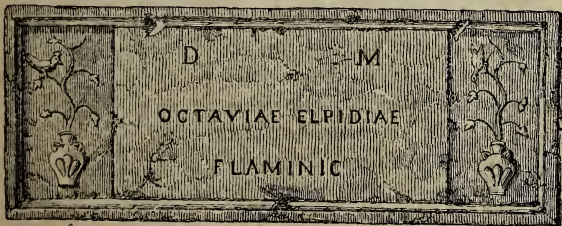 D M
OCTAVIAE ELPIDIAE
FLAMINIC